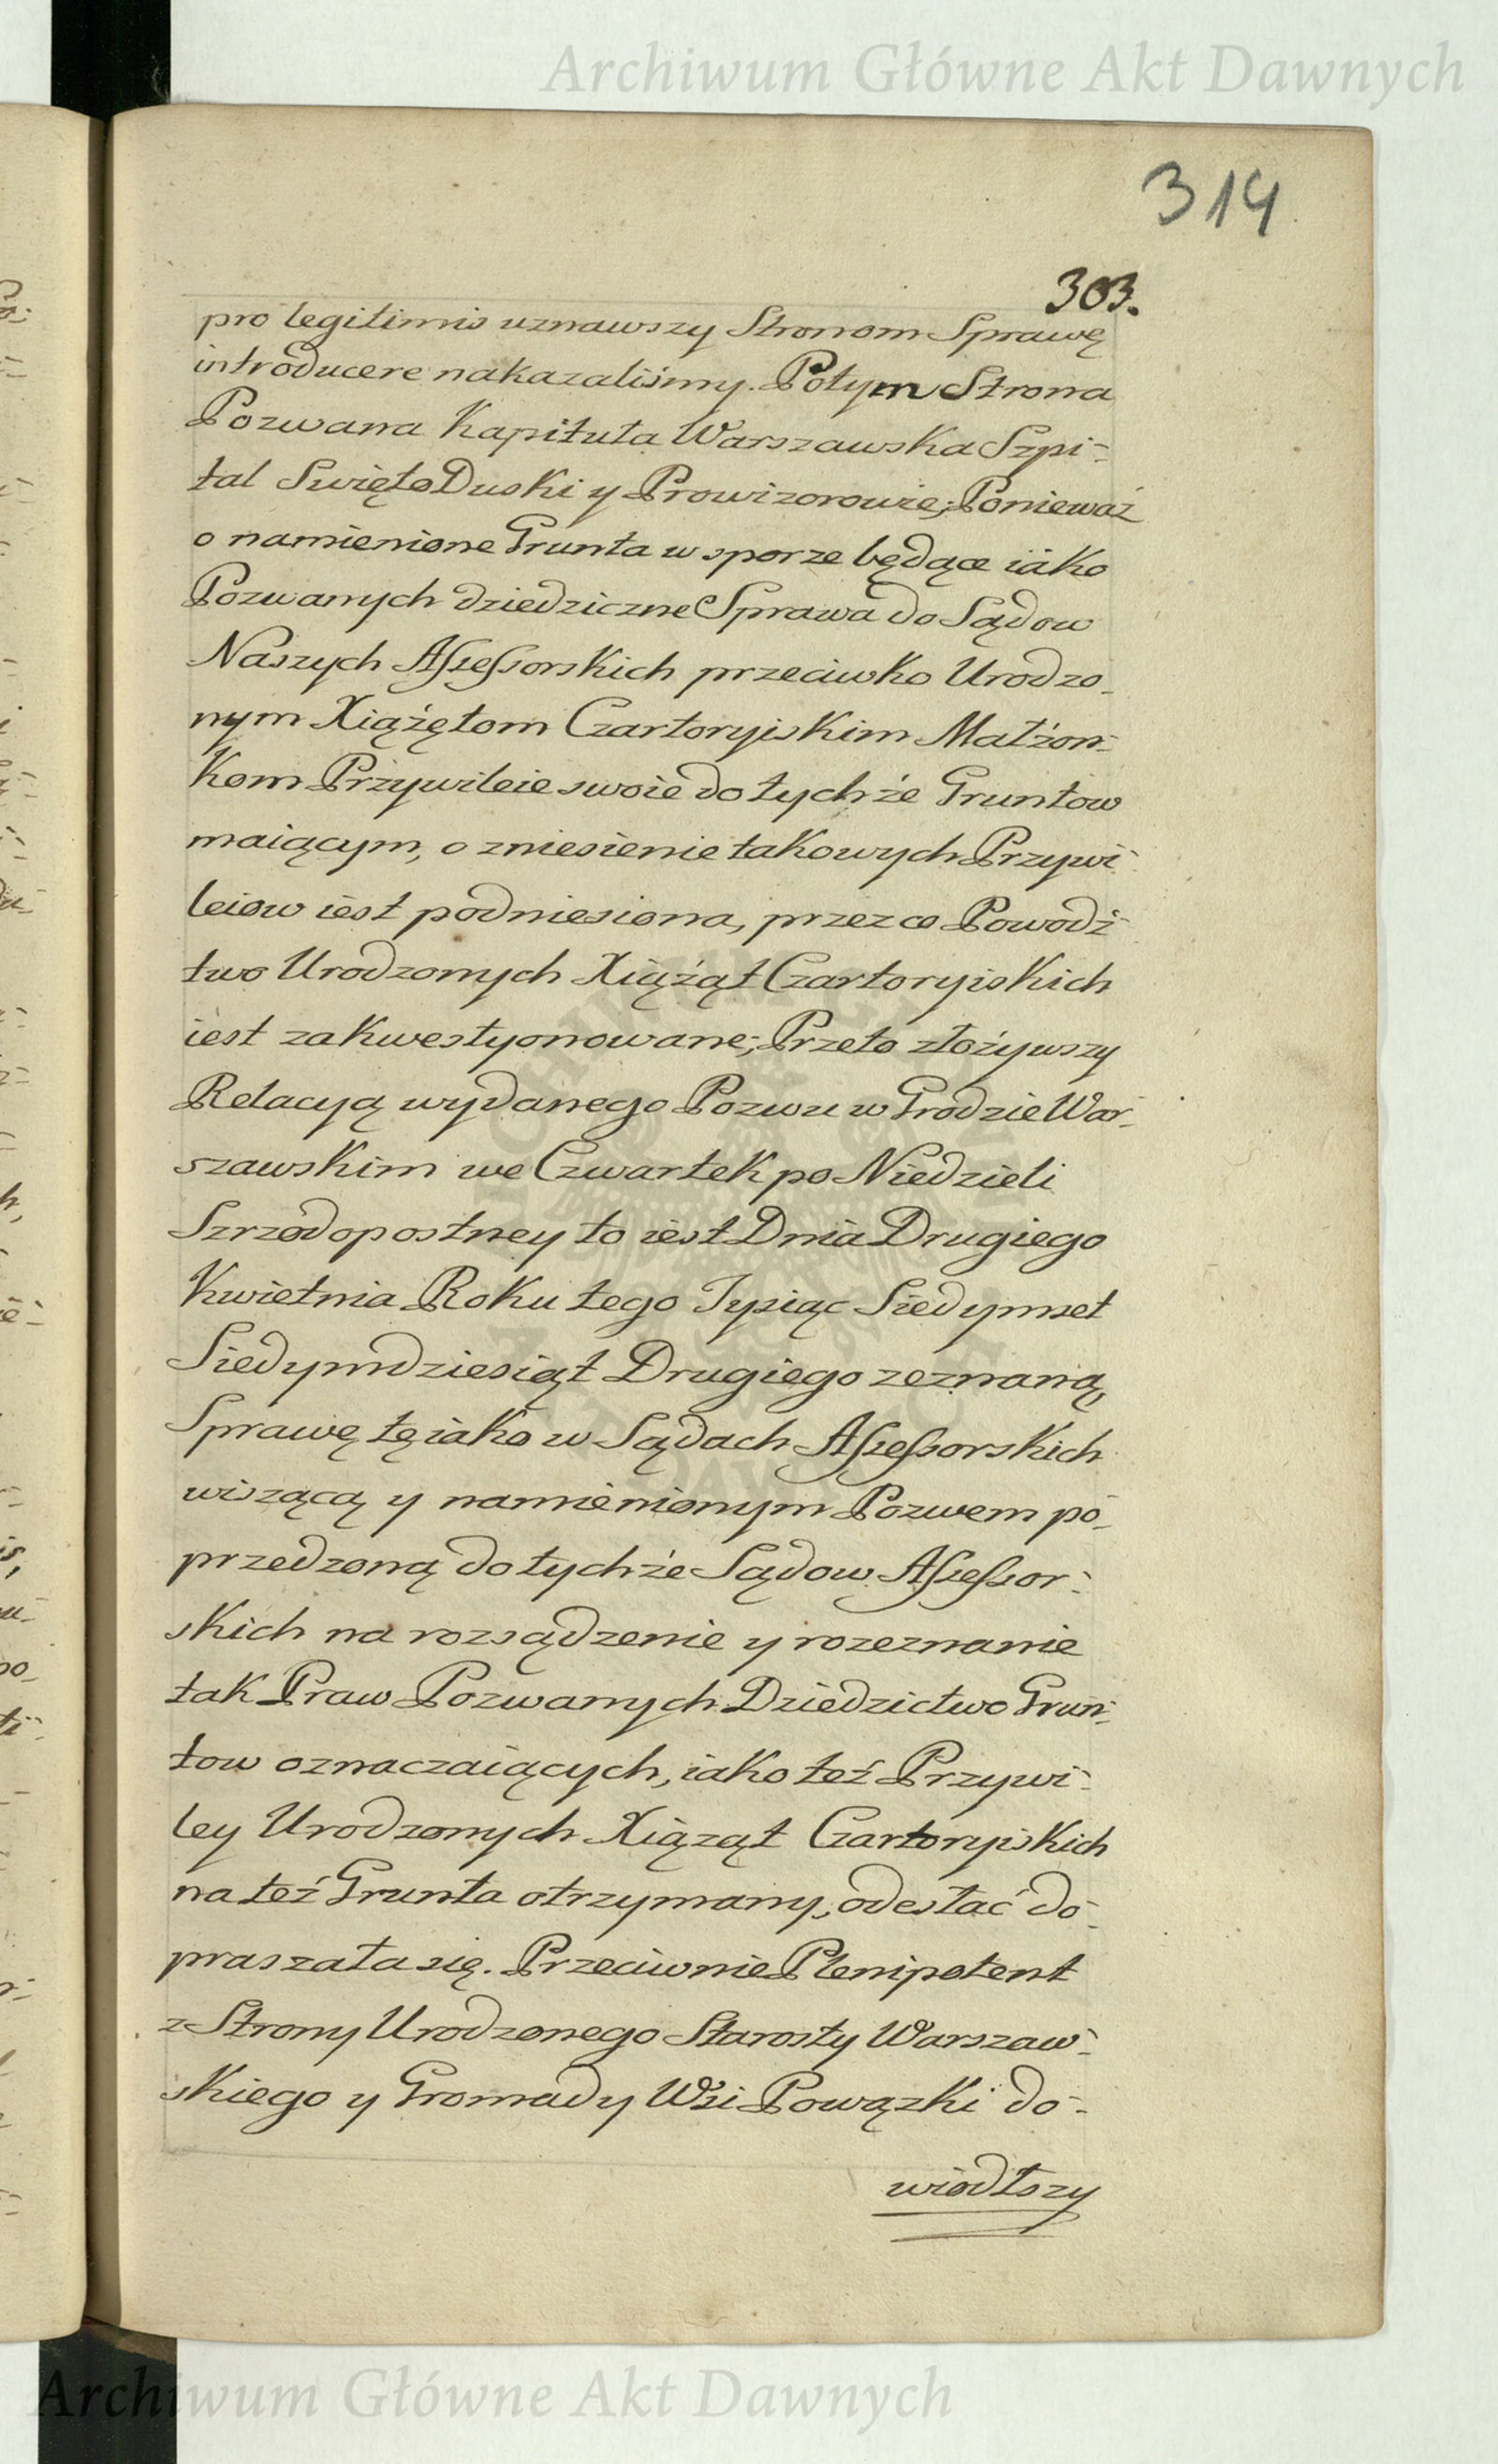 Archiwum Główne Akt Dawnych
314
303.
pro legitimis uznawszy Stronom Sprawę
introducere nakazaliśmy. Potym Strona
Pozwana Kapituła Warszawska Szpi-
tal Swięto Duski y Prowizorowie; Ponieważ
o namienione Grunta w sporze będące iako
Pozwanych dziedziczne Sprawa do Sądow
Naszych Assessorskich przeciwko Urodzo-
nym Xiążętom Czartoryiskim Małżon-
kom Przywileie swoie do tychże Gruntow
maiącym, o zniesienie takowych Przywi-
leiow iest podniesiona, przez co Powodź-
two Urodzonych Xiążąt Czartoryiskich
iest zakwestyonowane; Przeto złożywszy
Relacyą wydanego Pozwu w Grodzie War-
szawskim we Czwartek po Niedzieli
Szrzodopostney to iest Dnia Drugiego
Kwietnia Roku tego Tysiąc Siedymset
Siedymdziesiąt Drugiego zeznaną,
Sprawę tę iako w Sądach Assessorskich
wiszącą y namienionym Pozwem po-
przedzoną do tychże Sądow Assessor-
skich na rozsądzenie y rozeznanie
tak Praw Pozwanych Dziedzictwo Grun-
tow oznaczaiących, iako też Przywi-
ley Urodzonych Xiążąt Czartoryiskich
na też Grunta otrzymany, odesłać do-
praszała się. Przeciwnie Plenipotent
z Strony Urodzonego Starosty Warszaw-
skiego y Gromady Wsi Powązki do-
wiodłszy
Archiwum Główne Akt Dawnych